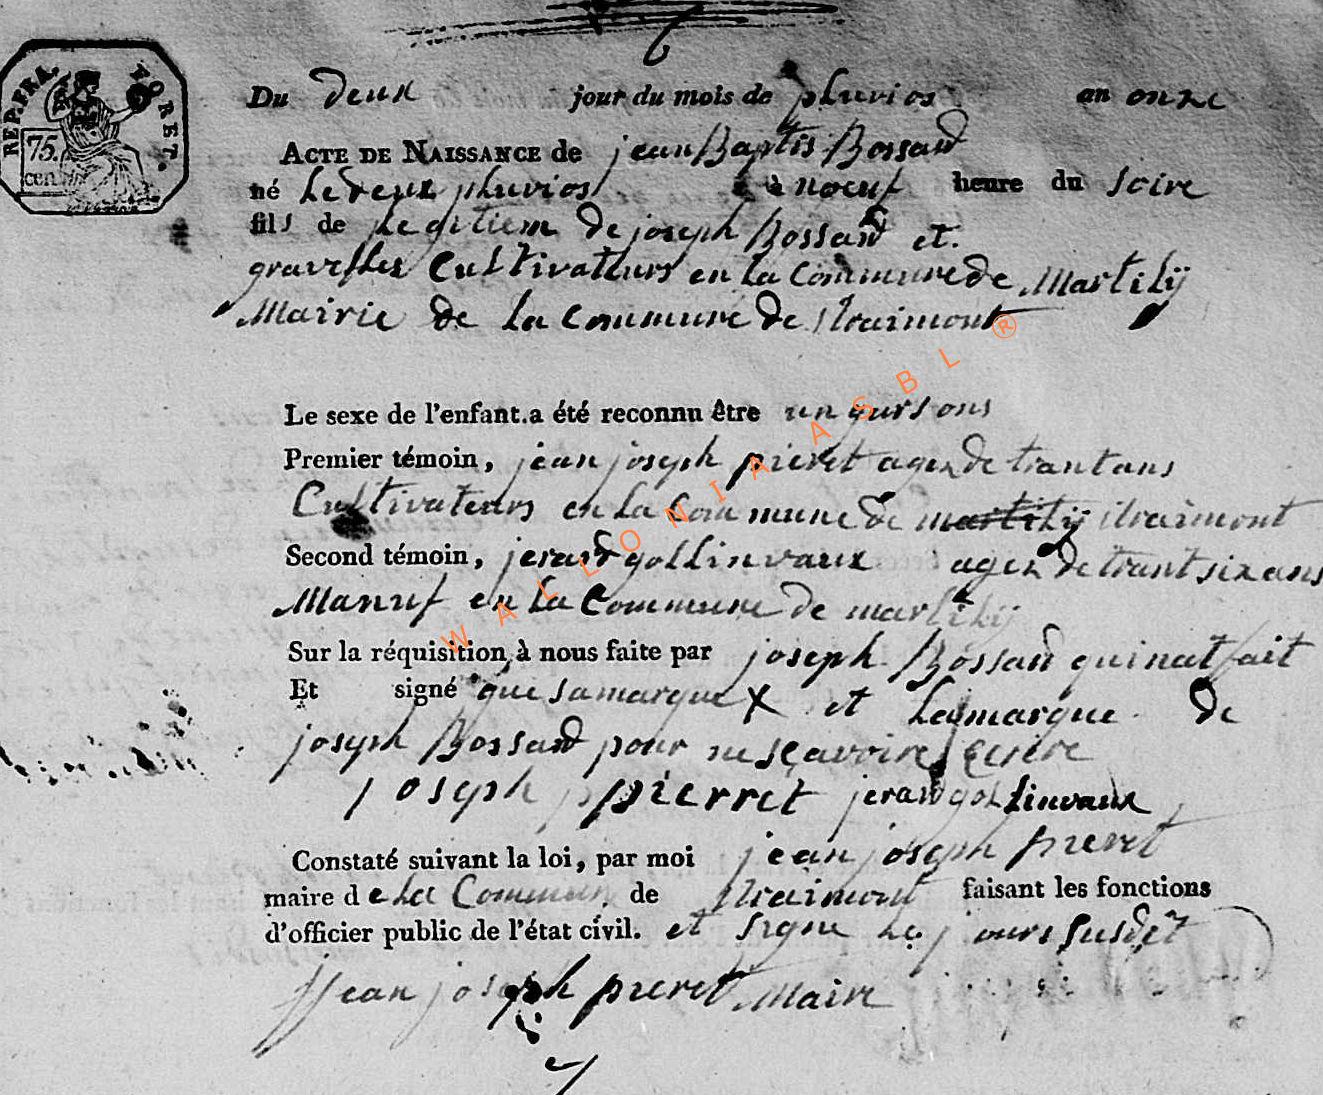 REP. FRA. FORET.
75.
cen
Du deux jour du mois de pluvios an onze
ACTE DE NAISSANCE de jean Baptis Bossard
né le deux pluvios à noeuf heure du soire
fils de Legitiem de joseph Bossard et.
Cultivateurs en la Commune de Martilij
Mairie de La Commune de straimont
Le sexe de l'enfant.a été reconnu être un garsons
Premier témoin, jean joseph pieret agez de trant ans
Cultivateurs en la Commune de martilij straimont
Second témoin, jerard gollinvaux agez de trant six ans
Manuf en la Commune de martilij
Sur la réquisition à nous faite par joseph Bossard qui nat fait
Et signé que sa marque X et La marque de
joseph Bossard pour ne sçavoire Ecrire
joseph pierret jerard gollinvaux
Constaté suivant la loi, par moi jean joseph pieret
maire de La Commun de straimont faisant les fonctions
d'officier public de l'état civil. et signe les jours susdit
jean joseph pieret Maire
WALLONIA ASBL ®